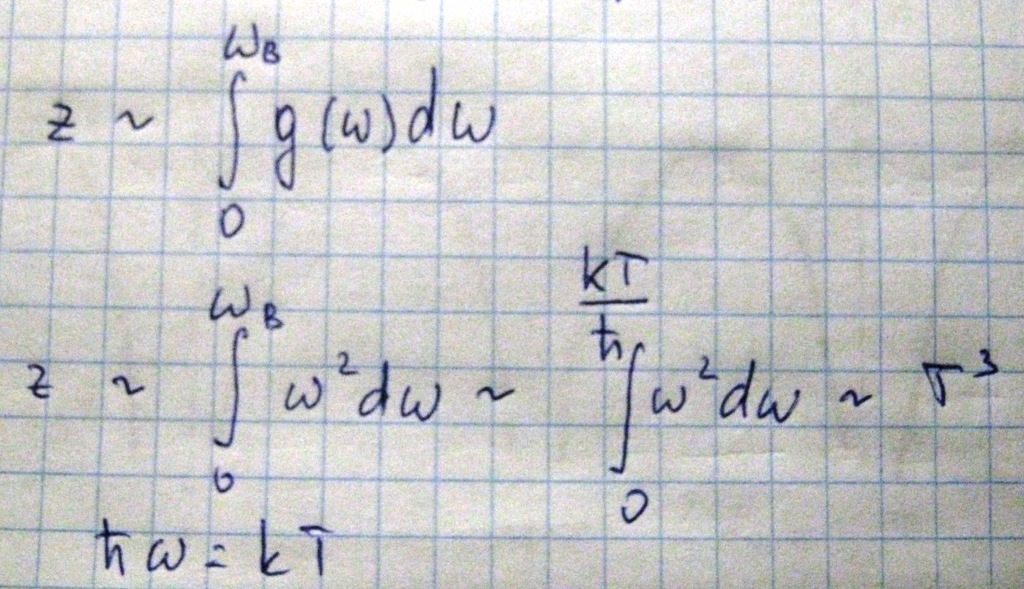 z ~ ∫₀^{ω_B} g(ω)dω
z ~ ∫₀^{ω_B} ω²dω ~ ∫₀^{kT/ħ} ω²dω ~ T³
ħω = kT